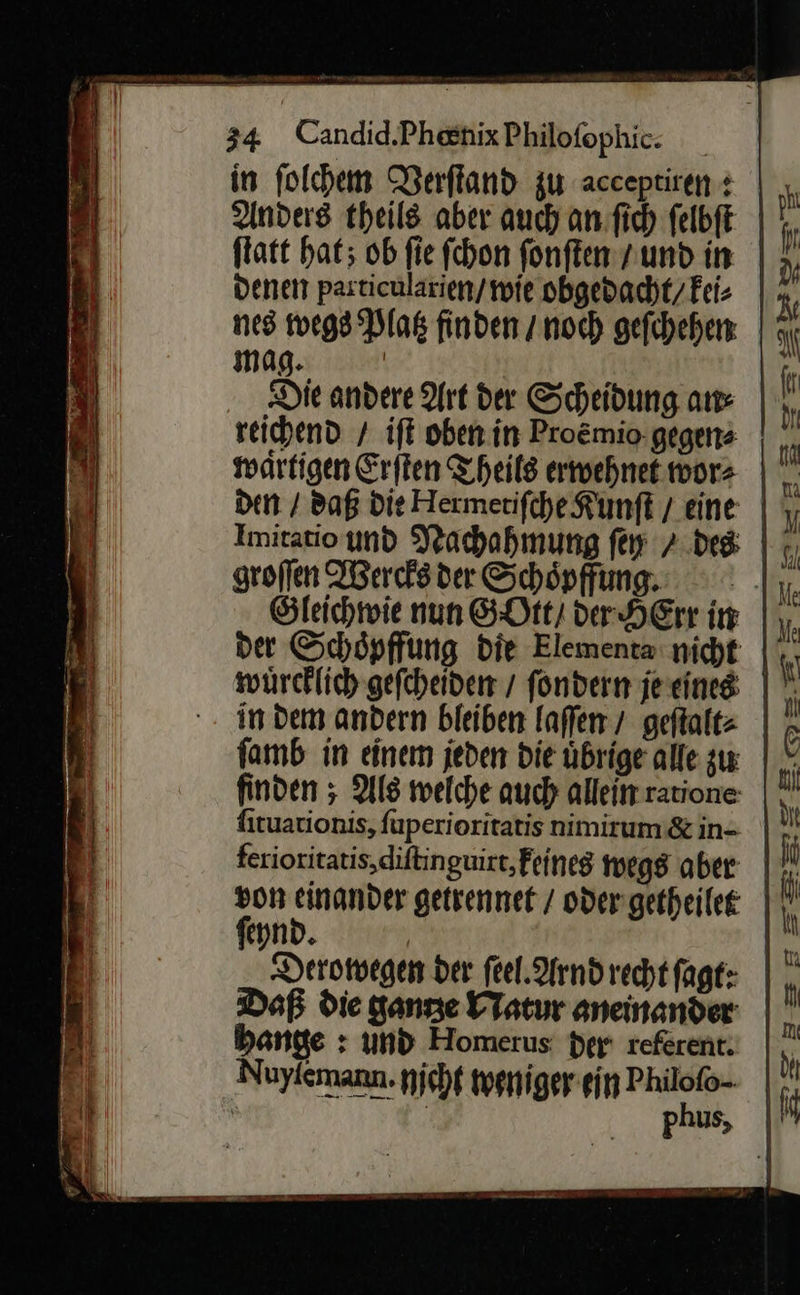 34 Candid. Phœnix Philoſophic.
in ſolchem Verſtand zu acceptiren :
Anders theils aber auch an ſich ſelbſt
ſtatt hat; ob ſie ſchon ſonſten / und in
denen particularien/ wie obgedacht/ kei⸗
nes wegs Platz finden / noch geſchehen
mag.
Die andere Art der Scheidung an⸗
reichend / iſt oben in Proëmio gegen⸗
waͤrtigen Erſten Theils erwehnet wor⸗
den / daß die Hermetiſche Kunſt / eine
Imitatio und Nachahmung ſey / des
groſſen Wercks der Schoͤpffung.
Gleichwie nun GOtt/ der HErr in
der Schoͤpffung die Elementa nicht
wuͤrcklich geſcheiden / ſondern je eines
in dem andern bleiben laſſen / geſtalt⸗
ſamb in einem jeden die uͤbrige alle zu
finden ; Als welche auch allein ratione
ſituationis, ſuperioritatis nimirum & in-
ferioritatis, diſtinguirt, keines wegs aber
von einander getrennet / oder getheilet
ſeynd.
Derowegen der ſeel. Arnd recht ſagt:
Daß die gantze Natur aneinander
hange : und Homerus der referent.
Nuyſemann. nicht weniger ein Philoſo-
phus,